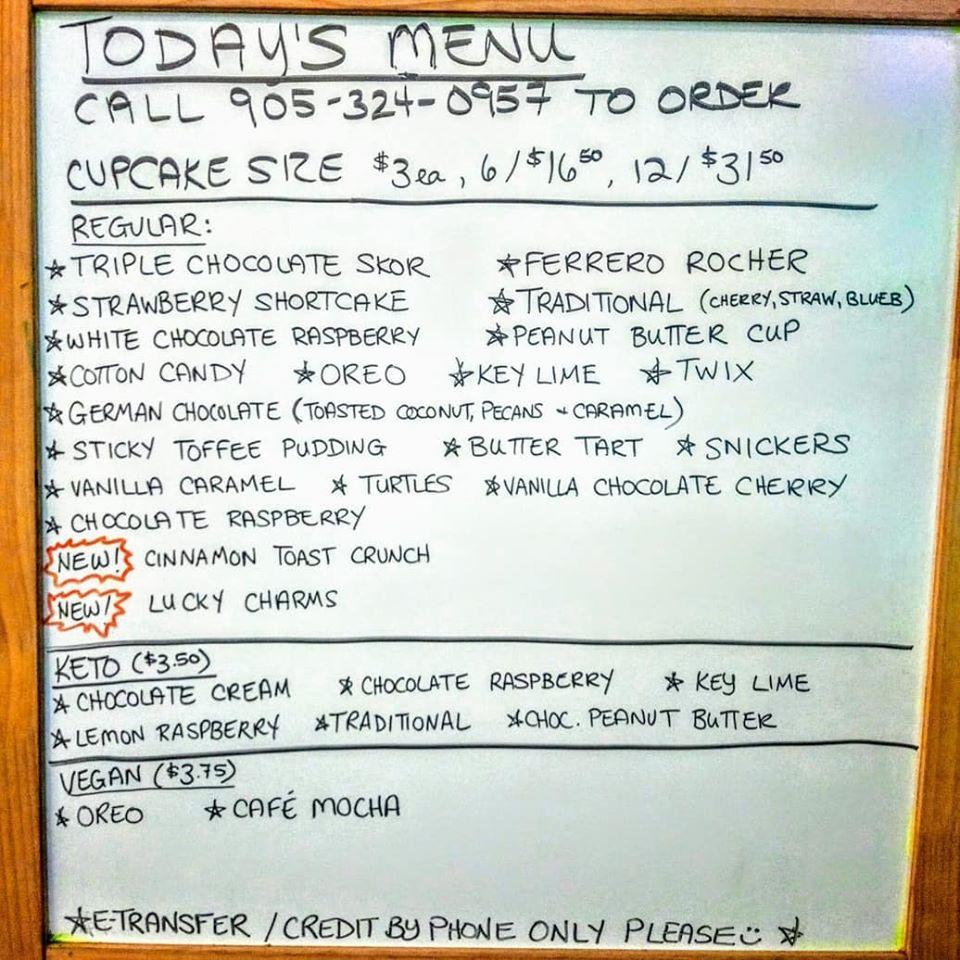 TODAY'S MENU
CALL 905-324-0957 TO ORDER
CUPCAKE SIZE $3ea, 6/$16⁵⁰, 12/$31⁵⁰
REGULAR:
☆TRIPLE CHOCOLATE SKOR ☆FERRERO ROCHER
☆STRAWBERRY SHORTCAKE ☆TRADITIONAL (CHERRY, STRAW, BLUEB)
☆WHITE CHOCOLATE RASPBERRY ☆PEANUT BUTTER CUP
☆COTTON CANDY ☆OREO ☆KEY LIME ☆TWIX
☆GERMAN CHOCOLATE (TOASTED COCONUT, PECANS + CARAMEL)
☆STICKY TOFFEE PUDDING ☆BUTTER TART ☆SNICKERS
☆VANILLA CARAMEL ☆TURTLES ☆VANILLA CHOCOLATE CHERRY
☆CHOCOLATE RASPBERRY
NEW! CINNAMON TOAST CRUNCH
NEW! LUCKY CHARMS
KETO ($3.50)
☆CHOCOLATE CREAM ☆CHOCOLATE RASPBERRY ☆KEY LIME
☆LEMON RASPBERRY ☆TRADITIONAL ☆CHOC. PEANUT BUTTER
VEGAN ($3.75)
☆OREO ☆CAFÉ MOCHA
☆E-TRANSFER / CREDIT BY PHONE ONLY PLEASE ☺ ☆